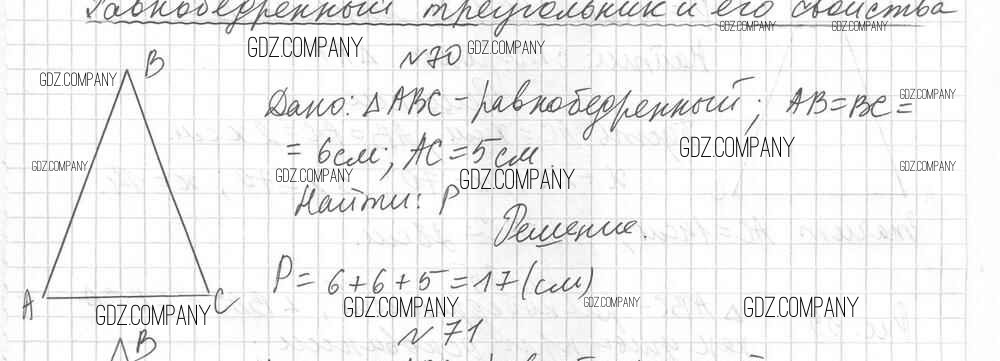 Равнобедренный треугольник и его свойства
GDZ.COMPANY GDZ.COMPANY
GDZ.COMPANY №70 GDZ.COMPANY
GDZ.COMPANY B
Дано: △ABC - равнобедренный; AB=BC= GDZ.COMPANY
= 6см; AC=5см GDZ.COMPANY
GDZ.COMPANY GDZ.COMPANY GDZ.COMPANY GDZ.COMPANY
Найти: P
Решение.
P= 6+6+5=17(см)
A C GDZ.COMPANY GDZ.COMPANY GDZ.COMPANY
GDZ.COMPANY
№71
B